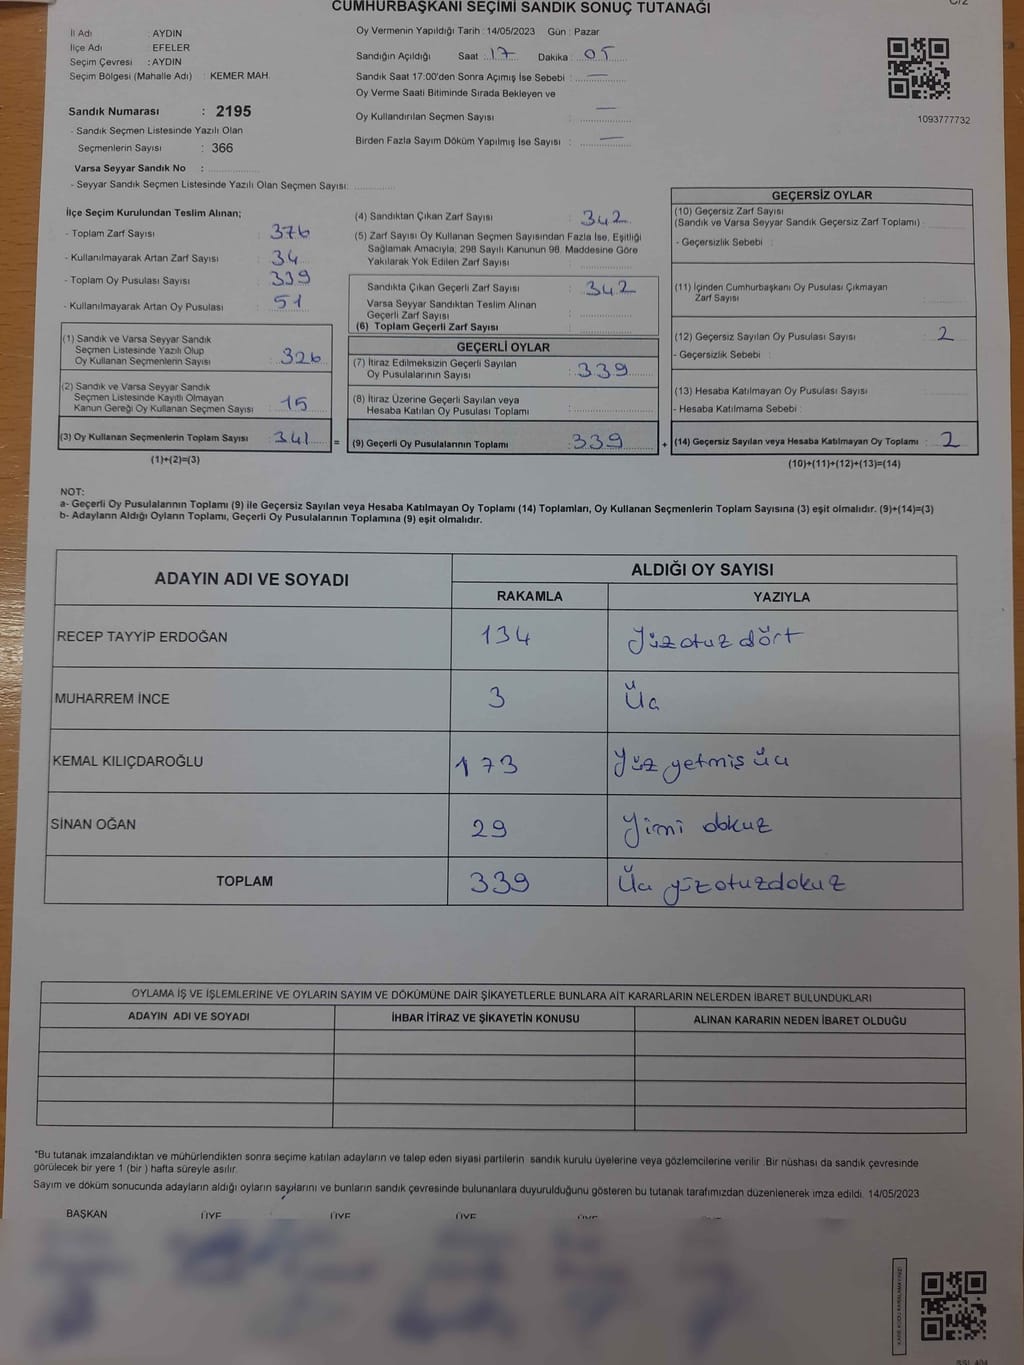 CUMHURBAŞKANI SEÇİMİ SANDIK SONUÇ TUTANAĞI
C/2
İl Adı : AYDIN
İlçe Adı : EFELER
Seçim Çevresi : AYDIN
Seçim Bölgesi (Mahalle Adı) : KEMER MAH.
Sandık Numarası : 2195
- Sandık Seçmen Listesinde Yazılı Olan
Seçmenlerin Sayısı : 366
Varsa Seyyar Sandık No :
- Seyyar Sandık Seçmen Listesinde Yazılı Olan Seçmen Sayısı:
Oy Vermenin Yapıldığı Tarih : 14/05/2023 Gün : Pazar
Sandığın Açıldığı Saat : 17 Dakika : 05
Sandık Saat 17:00'den Sonra Açımış İse Sebebi : —
Oy Verme Saati Bitiminde Sırada Bekleyen ve
Oy Kullandırılan Seçmen Sayısı : —
Birden Fazla Sayım Döküm Yapılmış İse Sayısı : —
1093777732
İlçe Seçim Kurulundan Teslim Alınan;
- Toplam Zarf Sayısı : 376
- Kullanılmayarak Artan Zarf Sayısı : 34
- Toplam Oy Pusulası Sayısı : 339
- Kullanılmayarak Artan Oy Pusulası : 51
(1) Sandık ve Varsa Seyyar Sandık
Seçmen Listesinde Yazılı Olup
Oy Kullanan Seçmenlerin Sayısı : 326
(2) Sandık ve Varsa Seyyar Sandık
Seçmen Listesinde Kayıtlı Olmayan
Kanun Gereği Oy Kullanan Seçmen Sayısı : 15
(3) Oy Kullanan Seçmenlerin Toplam Sayısı : 341
(1)+(2)=(3)
(4) Sandıktan Çıkan Zarf Sayısı : 342
(5) Zarf Sayısı Oy Kullanan Seçmen Sayısından Fazla İse, Eşitliği
Sağlamak Amacıyla; 298 Sayılı Kanunun 98. Maddesine Göre
Yakılarak Yok Edilen Zarf Sayısı :
Sandıkta Çıkan Geçerli Zarf Sayısı : 342
Varsa Seyyar Sandıktan Teslim Alınan
Geçerli Zarf Sayısı :
(6) Toplam Geçerli Zarf Sayısı :
GEÇERLİ OYLAR
(7) İtiraz Edilmeksizin Geçerli Sayılan
Oy Pusulalarının Sayısı : 339
(8) İtiraz Üzerine Geçerli Sayılan veya
Hesaba Katılan Oy Pusulası Toplamı :
= (9) Geçerli Oy Pusulalarının Toplamı : 339 +
GEÇERSİZ OYLAR
(10) Geçersiz Zarf Sayısı
(Sandık ve Varsa Seyyar Sandık Geçersiz Zarf Toplamı) :
- Geçersizlik Sebebi :
(11) İçinden Cumhurbaşkanı Oy Pusulası Çıkmayan
Zarf Sayısı :
(12) Geçersiz Sayılan Oy Pusulası Sayısı : 2
- Geçersizlik Sebebi :
(13) Hesaba Katılmayan Oy Pusulası Sayısı :
- Hesaba Katılmama Sebebi :
(14) Geçersiz Sayılan veya Hesaba Katılmayan Oy Toplamı : 2
(10)+(11)+(12)+(13)=(14)
NOT:
a- Geçerli Oy Pusulalarının Toplamı (9) ile Geçersiz Sayılan veya Hesaba Katılmayan Oy Toplamı (14) Toplamları, Oy Kullanan Seçmenlerin Toplam Sayısına (3) eşit olmalıdır. (9)+(14)=(3)
b- Adayların Aldığı Oyların Toplamı, Geçerli Oy Pusulalarının Toplamına (9) eşit olmalıdır.
ADAYIN ADI VE SOYADI
ALDIĞI OY SAYISI
RAKAMLA YAZIYLA
RECEP TAYYİP ERDOĞAN 134 Yüzotuz dört
MUHARREM İNCE 3 Üç
KEMAL KILIÇDAROĞLU 173 Yüz yetmiş üç
SİNAN OĞAN 29 Yirmi dokuz
TOPLAM 339 Üç yüzotuzdokuz
OYLAMA İŞ VE İŞLEMLERİNE VE OYLARIN SAYIM VE DÖKÜMÜNE DAİR ŞİKAYETLERLE BUNLARA AİT KARARLARIN NELERDEN İBARET BULUNDUKLARI
ADAYIN ADI VE SOYADI İHBAR İTİRAZ VE ŞİKAYETİN KONUSU ALINAN KARARIN NEDEN İBARET OLDUĞU
"Bu tutanak imzalandıktan ve mühürlendikten sonra seçime katılan adayların ve talep eden siyasi partilerin sandık kurulu üyelerine veya gözlemcilerine verilir. Bir nüshası da sandık çevresinde
görülecek bir yere 1 (bir ) hafta süreyle asılır.
Sayım ve döküm sonucunda adayların aldığı oyların sayılarını ve bunların sandık çevresinde bulunanlara duyurulduğunu gösteren bu tutanak tarafımızdan düzenlenerek imza edildi. 14/05/2023
BAŞKAN ÜYE ÜYE ÜYE ÜYE ÜYE